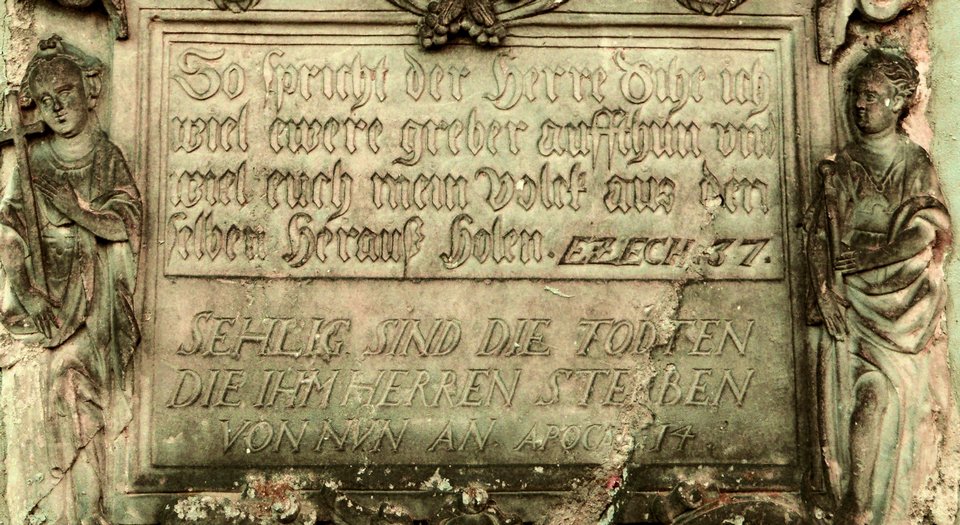 So spricht der Herre Sihe ich
wiel ewere greber auffthun vnd
wiel euch mein Volck aus den
selben Herauß Holen. EZECH. 37.
SEHLIG SIND DIE TODTEN
DIE IHM HERREN STERBEN
VON NVN AN. APOCA. 14